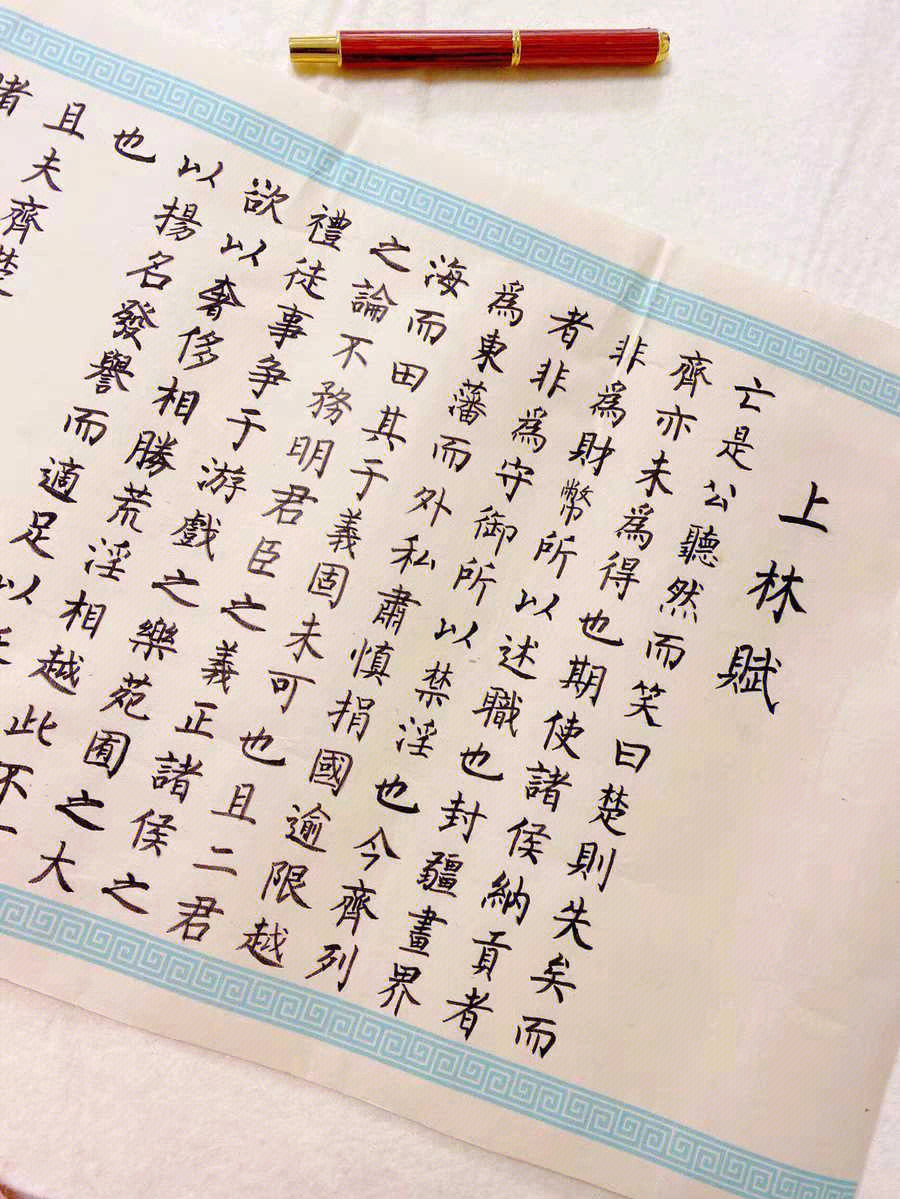 上林賦
亡是公聽然而笑曰楚則失矣而
齊亦未爲得也期使諸侯納貢者
非爲財幣所以述職也封疆畫界
者非爲守御所以禁淫也今齊列
爲東藩而外私肅慎捐國逾限越
海而田其于義固未可也且二君
之論不務明君臣之義正諸侯之
禮徒事争于游戲之樂苑囿之大
欲以奢侈相勝荒淫相越此不
以揚名發譽而適足以
也
且夫齊楚